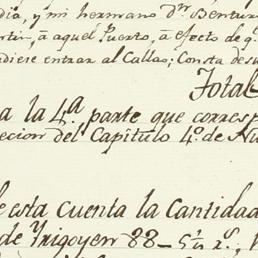 dia, y mi hermano Dn. Bentur
rtin, à aquel Puerto, à efecto de q.
udiese entrar al Callao; Consta de su
Total
a la 4.a parte que corresp
ecion del Capitulo 4.o de Nu
e esta cuenta la Cantidad
de Yrigoyen 88